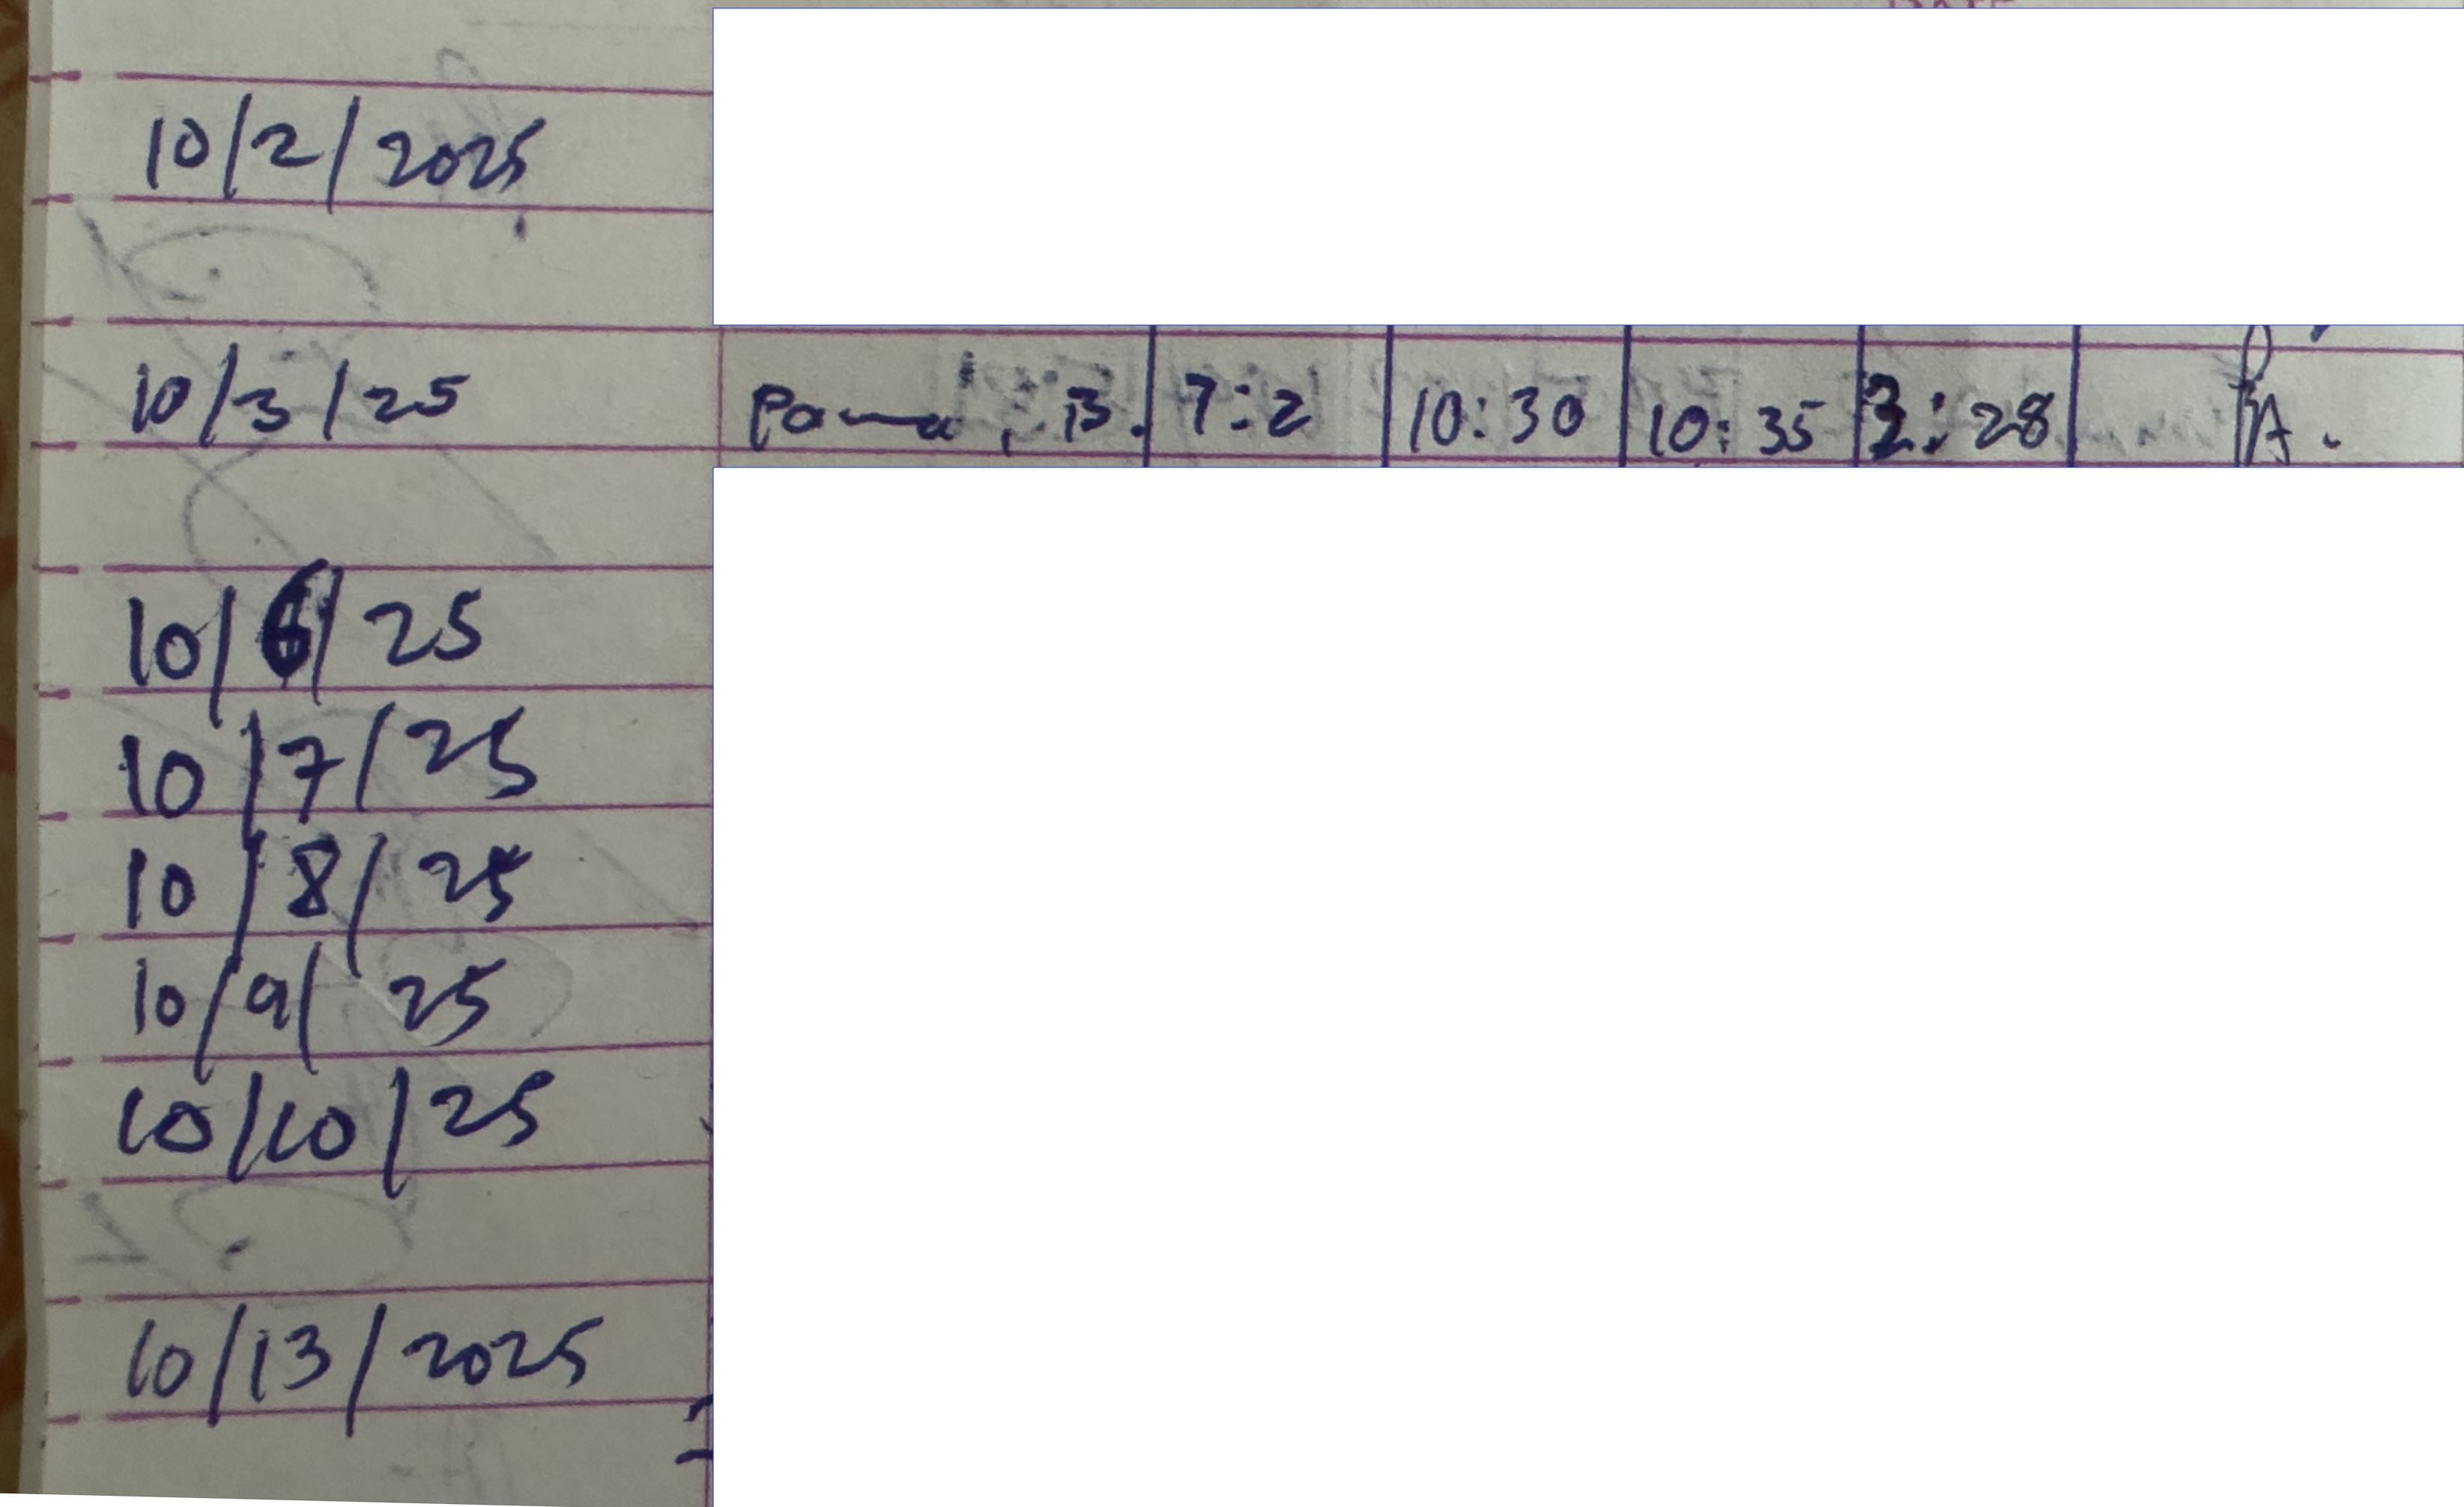 10/2/2025
10/3/25 B. 7:2 10:30 10:35 2:28 A.
10/6/25
10/7/25
10/8/25
10/9/25
10/10/25
10/13/2025